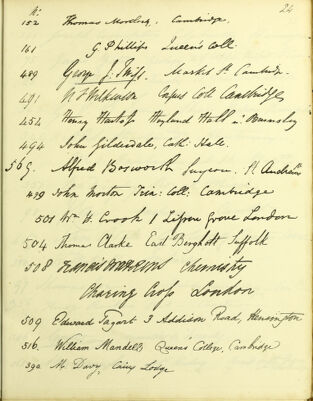 No. 24
152 Thomas Cambridge.
161 G Phillips Queen's Coll:
489 George J. Marks St Cambridge.
491 Wilkinson Corpus Coll Cambridge
454 Henry Hoyland Hall nr Barnsley
494 John Cath: Hall.
565. Alfred Bosworth Surgeon. St
429 John Morton Trin: Coll: Cambridge
501 Wm H. Crook 1 Grove London
504 Thomas Clarke East Bergholt Suffolk
508 Francis Chemistry
Charing Cross London
509 Edward Tagart 3 Addison Road, Kensington
516. William Mandell, Queen's College, Cambridge
390 M. Davy, Caius Lodge